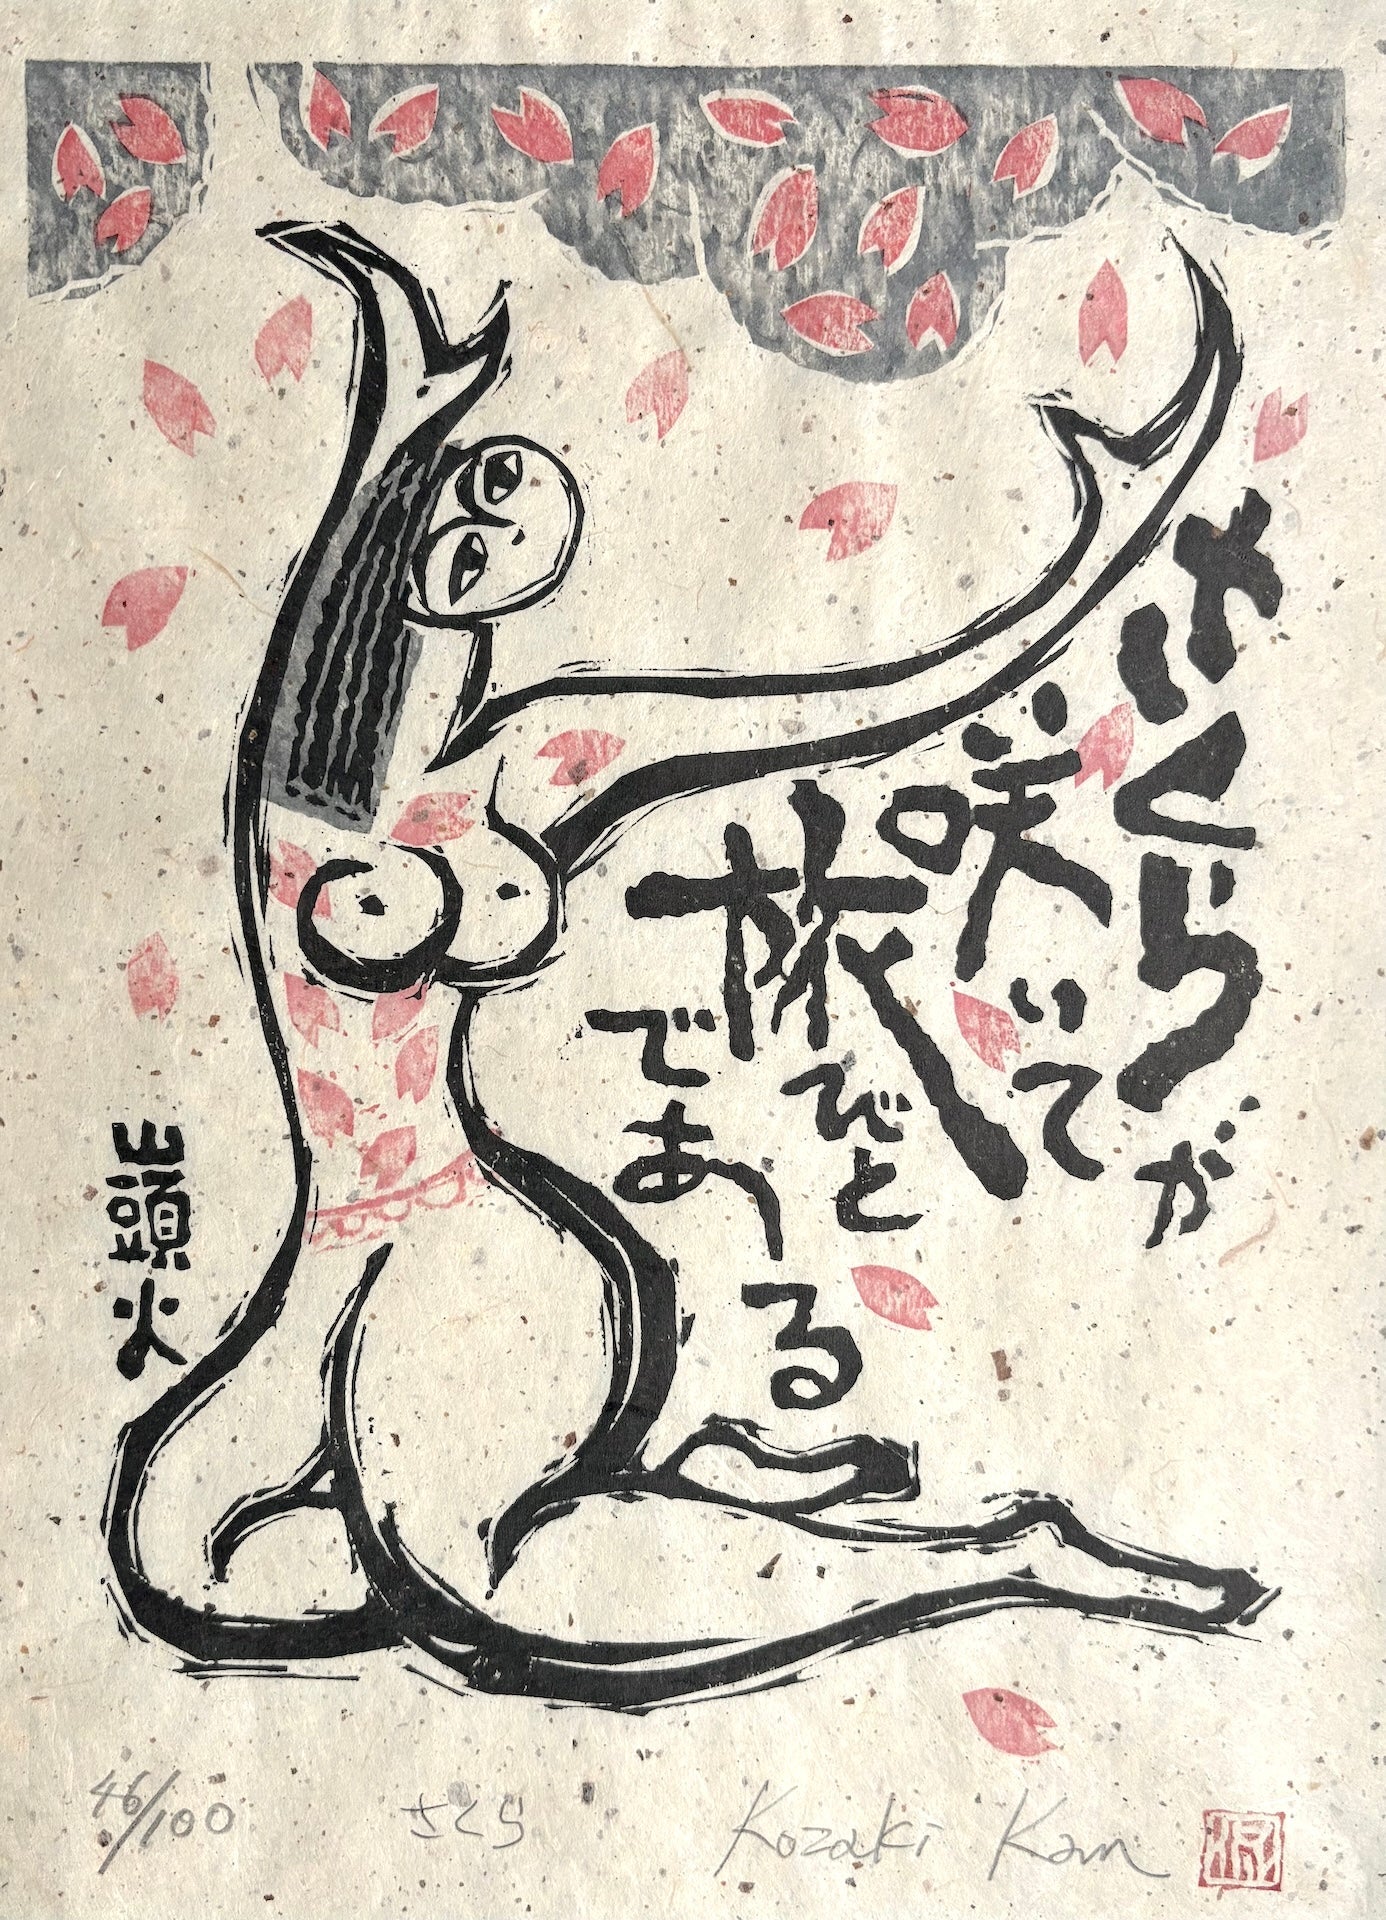 さくらが
咲いて
旅びと
である
46/100
さくら
Kozaki Kan